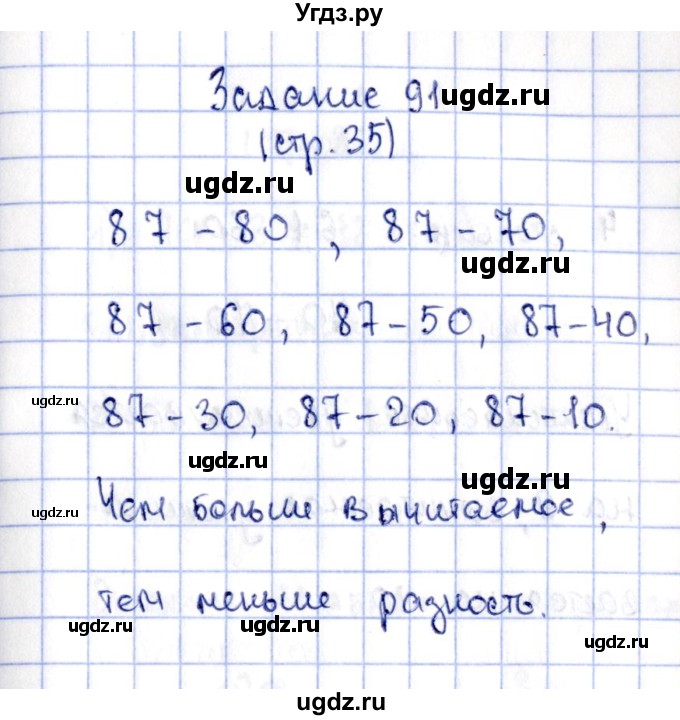 Угдз.ру
Задание 91ugdz.ru
(стр. 35)
ugdz.ru
87 - 80 , 87 - 70,
ugdz.ru
87 - 60, 87 - 50, 87 - 40,
ugdz.ru
87 - 30, 87 - 20, 87 - 10.
ugdz.ru
ugdz.ru
ugdz.ru
Чем больше вычитаемое,
тем меньше разность.
ugdz.ru
ugdz.ru
ugdz.ru
ugdz.ru